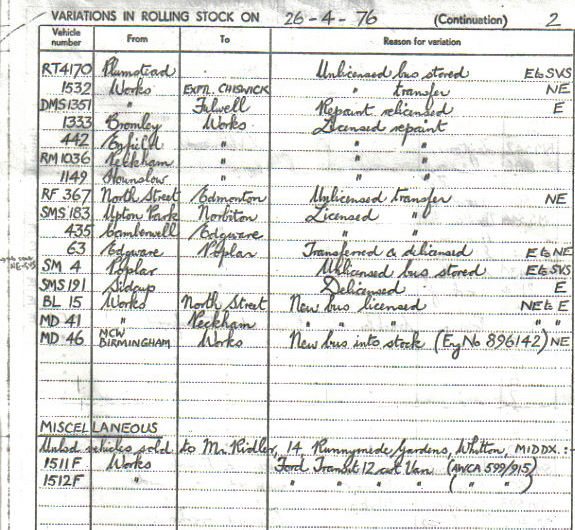 VARIATIONS IN ROLLING STOCK ON 26-4-76 (Continuation) 2
Vehicle number From To Reason for variation
RT4170 Plumstead Unlicensed bus stored E to SVS
1532 Works EXPTL CHISWICK " transfer NE
DMS1351 " Fulwell Repaint relicensed E
1333 Bromley Works Licensed repaint
442 Enfield " " "
RM1036 Peckham " " "
1149 Hounslow " " "
RF 367 North Street Edmonton Unlicensed transfer NE
SMS183 Upton Park Norbiton Licensed "
435 Camberwell Edgware " "
63 Edgware Poplar Transferred & delicensed E to NE
SM 4 Poplar Unlicensed bus stored E to SVS
SMS191 Sidcup Delicensed E
BL 15 Works North Street New bus licensed NE to E
MD 41 " Peckham " " " " "
MD 46 MCW BIRMINGHAM Works New bus into stock (Eng No 896142) NE
MISCELLANEOUS
Unlsd vehicles sold to Mr. Ridler, 14, Runnymede Gardens, Whitton, MIDDX. :-
1511F Works Ford Transit 12 cwt Van (AWCA 599/915)
1512F " " " " " ( " " )